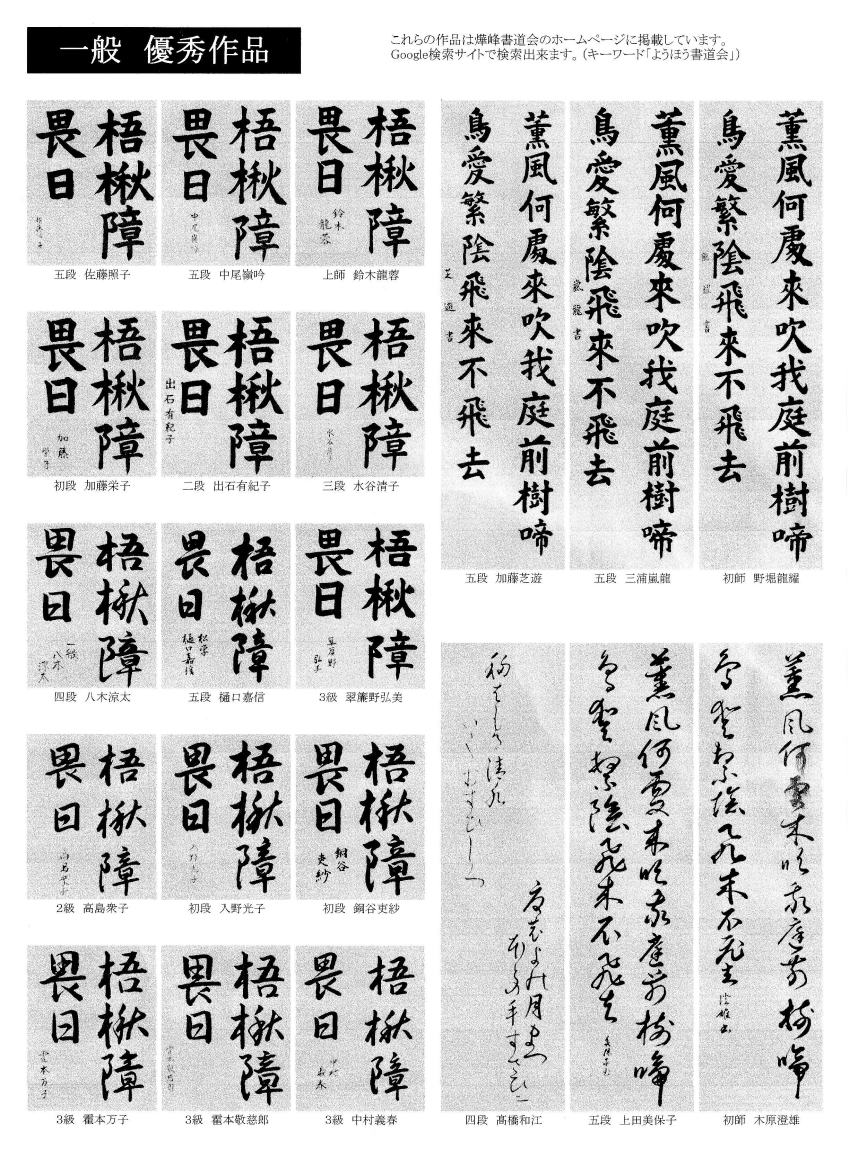 一般 優秀作品
これらの作品は燁峰書道会のホームページに掲載しています。
Google検索サイトで検索出来ます。（キーワード「ようほう書道会」）
梧楸障
畏日
五段 佐藤照子
梧楸障
畏日
五段 中尾嶺吟
梧楸障
畏日
鈴木
龍蓉
上師 鈴木龍蓉
梧楸障
畏日
加藤
初段 加藤栄子
梧楸障
畏日
出石有紀子
二段 出石有紀子
梧楸障
畏日
三段 水谷清子
梧楸障
畏日
一般
八木
涼太
四段 八木涼太
梧楸障
畏日
樋口嘉信
五段 樋口嘉信
梧楸障
畏日
3級 翠簾野弘美
梧楸障
畏日
2級 高島衆子
梧楸障
畏日
初段 入野光子
梧楸障
畏日
銅谷
吏紗
初段 銅谷吏紗
梧楸障
畏日
霍本万子
3級 霍本万子
梧楸障
畏日
3級 霍本敬慈郎
梧楸障
畏日
3級 中村義春
薫風何處來吹我庭前樹啼
鳥愛繁陰飛來不飛去
芝遊書
五段 加藤芝遊
薫風何處來吹我庭前樹啼
鳥愛繁陰飛來不飛去
嵐龍書
五段 三浦嵐龍
薫風何處來吹我庭前樹啼
鳥愛繁陰飛來不飛去
龍耀書
初師 野堀龍耀
四段 髙橋和江
薫風何處来吹我庭前樹啼
鳥愛繁陰飛来不飛去
五段 上田美保子
薫風何處来吹我庭前樹啼
鳥愛繁陰飛来不飛去
澄雄書
初師 木原澄雄